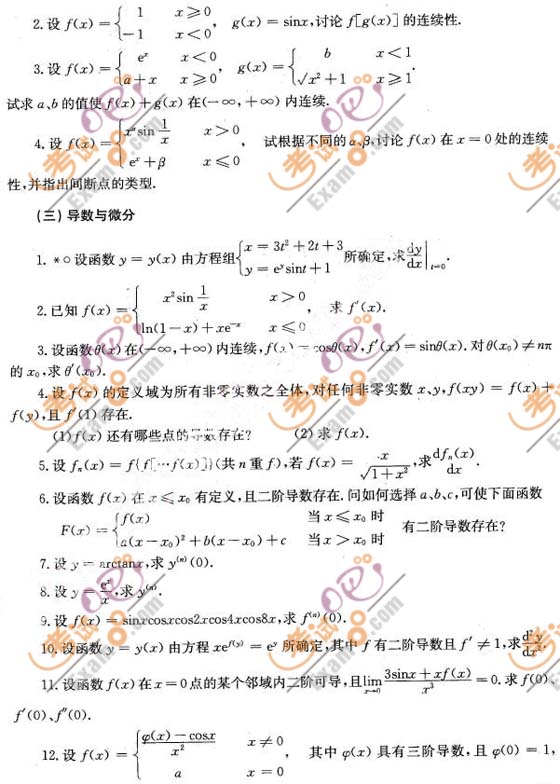 2.设 f(x)={ 1 x≥0, -1 x<0, g(x)=sinx,讨论 f[g(x)]的连续性.
3.设 f(x)={ eˣ x<0, a+x x≥0, g(x)={ b x<1, √(x²+1) x≥1.
试求 a、b 的值使 f(x)+g(x)在(-∞,+∞)内连续.
4.设 f(x)={ x^α sin 1/x x>0, eˣ+β x≤0, 试根据不同的 α、β,讨论 f(x)在 x=0 处的连续
性,并指出间断点的类型.
(三)导数与微分
1. *○设函数 y=y(x)由方程组{ x=3t²+2t+3, y=e^y sint+1 所确定,求 dy/dx|t=0.
2.已知 f(x)={ x² sin 1/x x>0, ln(1-x)+xe^(-x) x≤0, 求 f′(x).
3.设函数 θ(x)在(-∞,+∞)内连续,f(x)=cosθ(x),f′(x)=sinθ(x).对 θ(x₀)≠nπ
的 x₀,求 θ′(x₀).
4.设 f(x)的定义域为所有非零实数之全体,对任何非零实数 x、y,f(xy)=f(x)+
f(y),且 f′(1)存在.
(1)f(x)还有哪些点的导数存在? (2)求 f(x).
5.设 fₙ(x)=f{f[…f(x)]}(共 n 重 f),若 f(x)=x/√(1+x²),求 dfₙ(x)/dx.
6.设函数 f(x)在 x≤x₀ 有定义,且二阶导数存在.问如何选择 a、b、c,可使下面函数
F(x)={ f(x) 当 x≤x₀ 时, a(x-x₀)²+b(x-x₀)+c 当 x>x₀ 时 有二阶导数存在?
7.设 y=arctanx,求 y⁽ⁿ⁾(0).
8.设 y=eˣ/x,求 y⁽ⁿ⁾.
9.设 f(x)=sinxcosxcos2xcos4xcos8x,求 f⁽ⁿ⁾(0).
10.设函数 y=y(x)由方程 xe^f(y)=e^y 所确定,其中 f 有二阶导数且 f′≠1,求 d²y/dx².
11.设函数 f(x)在 x=0 点的某个邻域内二阶可导,且 lim x→0 (3sinx+xf(x))/x³=0.求 f(0)、
f′(0)、f″(0).
12.设 f(x)={ (φ(x)-cosx)/x² x≠0, a x=0, 其中 φ(x)具有三阶导数,且 φ(0)=1,
考试吧
Exam8.com